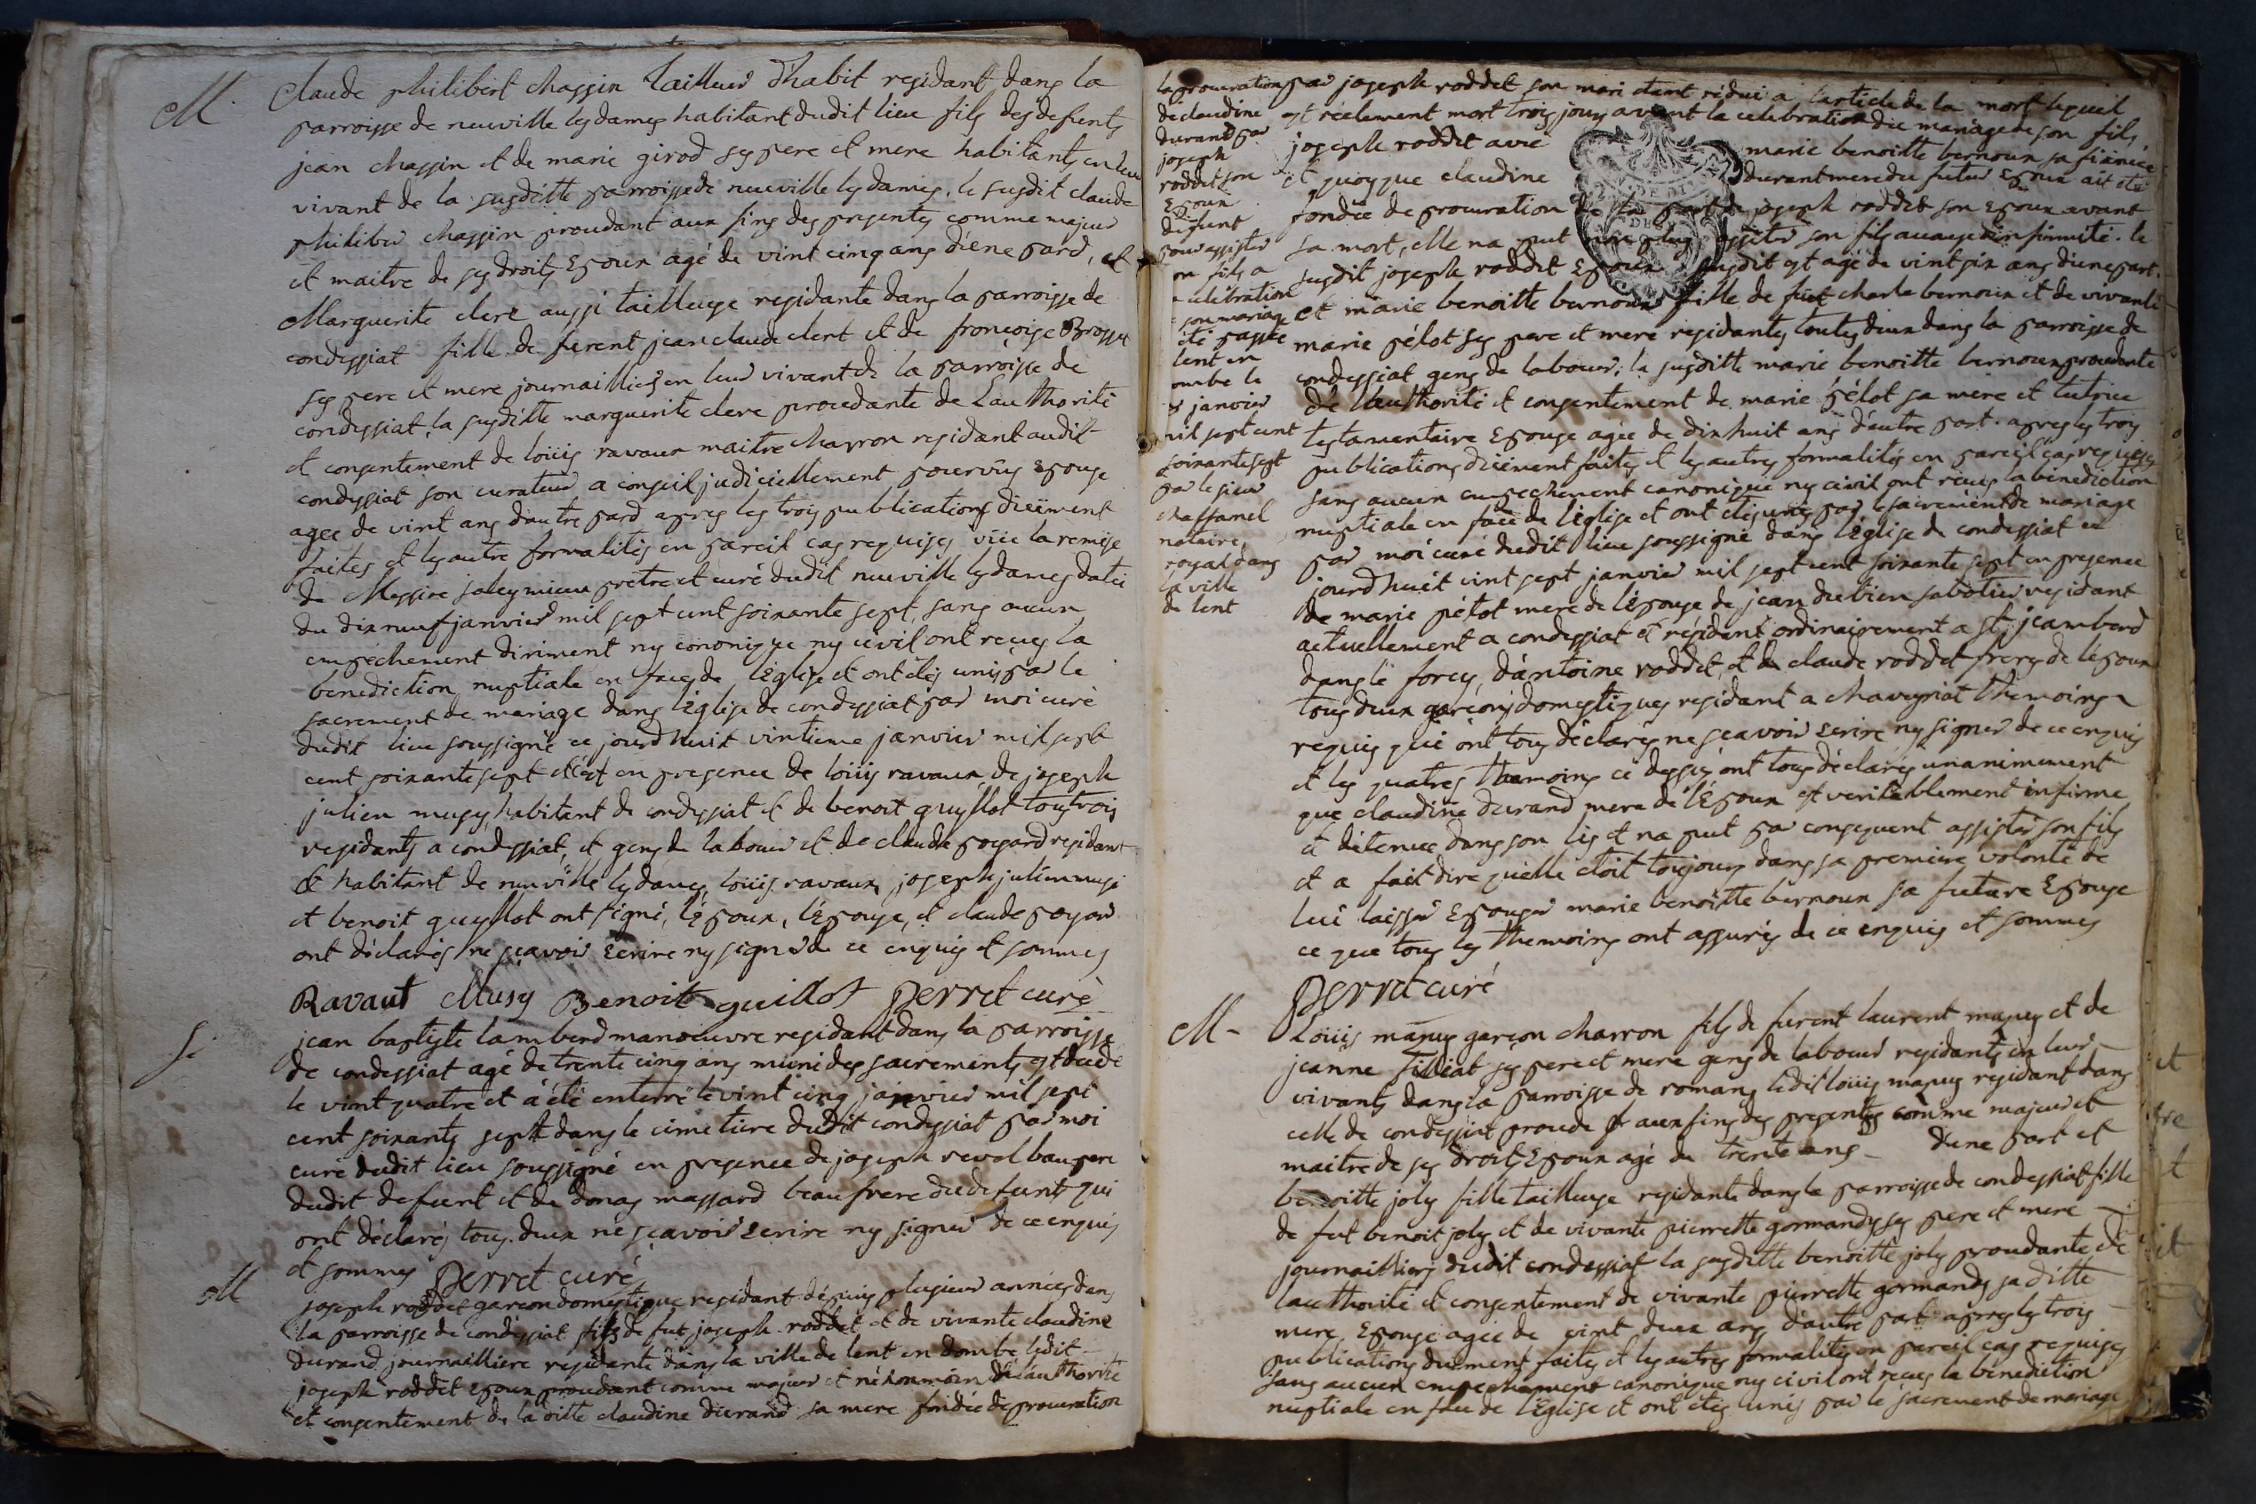 M. Claude philibert chassin tailleur dhabit residant dans la
parroisse de neuville les dames habitant dudit lieu fils des defunts
jean chassin et de marie girod ses pere et mere habitants en leur
vivant de la susditte parroisse de neuville les dames. le susdit claude
philiber chassin procedant aux fins des presentes comme majeur
et maitre de ses droits Epoux agé de vint cinq ans d'une pard, et
Marguerite clere aussi tailleuse residante dans la parroisse de
condessiat fille de furent jean claude clert et de françoise Brosse
ses pere et mere journailliers en leur vivant de la parroisse de
condessiat, la susditte marguerite clere procedante de Lauthorité
et consentement de loüis ravaux maitre charron residant audit
condessiat son curateur a conseil judiciellement pourvûs Epouse
agée de vint ans d'autre pard apres les trois publications düement
faites et les autre formalités en pareil cas requises vüe la remise
de Messire prêtre et curé dudit neuville les dames datée
du dix neuf janvier mil sept cent soixante sept, sans aucun
empéchement diriment ny cononique ny civil ont recus la
benediction nuptiale en face de l'Eglise et ont étés unis par le
sacrement de mariage dans l'Eglise de condessiat par moi curé
dudit lieu soussigné ce jourdhuit vintieme janvier mil sept
cent soixante sept en presence de loüis ravaux, de joseph
julien musy habitant de condessiat et de benoit guyllot tous trois
residants a condessiat, et gens de labour et de claude poyard residant
et habitant de neuville les dames, loüis ravaux, joseph julien musi
et benoit guyllot ont signé, l'époux, l'Epouse, et claude poyard
ont déclarés ne sçavoir Ecrire ny signer de ce enquis et sommés
Ravaut Musy Benoit guillot Perret curé
S. jean baptiste lamberd manoeuvre residant dans la parroisse
de condessiat agé de trente cinq ans muni des sacrements est décédé
le vint quatre et a été enterré le vint cinq janvier mil sept
cent soixante sept dans le cimetiere dudit condessiat par moi
curé dudit lieu soussigné en presence de joseph revol beaupere
dudit defunt et de donas massard beaufrere du defunt qui
ont déclarés tous deux né sçavoir Ecrire ny signer de ce enquis
et sommés Perret curé
M joseph roddet garcon domestique residant dépuis plusieur années dans
la parroisse de condessiat fils de fut joseph roddet et de vivante claudine
Durand journailliere residante dans la ville de lent en dombe ledit
joseph roddet Epoux procedant comme majeur et néanmoin de l'authorité
et consentement de la ditte claudine durand sa mere fondée de procuration
la procuration
de claudine
durand par
joseph
roddet son
Epoux
défunt
pour assister
on fils a
celebration
son mariage
été passée
lent en
ombe le
janvier
mil sept cent
soixante sept
par le sieur
chaffanel
notaire
royal dans
la ville
de lent
par joseph roddet son mari étant rédui a l'article de la mort lequel
est réelement mort trois jours avant la celebration du mariage de son fils,
joseph roddet avec marie benoitte bernoux sa fiancée
et quoyque claudine durant mere du futur Epoux ait été
fondée de procuration de la part de joseph roddet son Epoux avant
sa mort, elle na put non plus assister son fils a cause d'infirmité. le
susdit joseph roddet Epoux susdit est agé de vint six ans d'une part.
et marie benoitte bernoux fille de fut charle bernoux et de vivante
marie pélot ses pere et mere residantes toutes deux dans la parroisse de
condessiat gens de labour; la susditte marie benoitte bernoux procedante
de l'authorité et consentement de marie pélot sa mere et tutrice
testamentaire Epouse agée de dixhuit ans d'autre part. apres les trois
publications düement faites et les autres formalités en pareil cas requises
sans aucun empechement canonique ny civil ont recus la bénédiction
nuptiale en face de l'église et ont étés unis par le sacrement de mariage
par moi curé dudit lieu soussigné dans l'église de condessiat ce
jourdhuit vint sept janvier mil sept cent soixante sept en presence
de marie pélot mere de l'Epouse de jean dubien sabotier residant
actuellement a condessiat et résidant ordinairement a st jeamberd
dans le forez, d'antoine roddet, et de claude roddet freres de l'époux
tous deux garçons domestiques residant a chaveyriat themoins
requis qui ont tous déclarés ne sçavoir Ecrire ny signer de ce enquis
et les quatres themoins ci dessus ont tous déclarés unanimement
que claudine durand mere de l'Epoux est veritablement infirme
et détenue dans son lis et na put par consequent assister son fils
et a fait dire quelle étoit toujours dans sa premiere volonté de
lui laisser Epouser marie benoitte bernoux sa future Epouse
ce que tous les themoins ont assurés de ce enquis et sommés
Perret curé
M - Loüis mapus garçon charron fils de furent laurent mapus et de
jeanne filliat ses pere et mere gens de labour residants en leur
vivants dans la parroisse de romans ledit loüis mapus residant dans
celle de condessiat procede aux fins des presentes comme majeur et
maitre de ses droits Epoux agé de trente ans - d'une part et
benoitte joly fille tailleuse residante dans la parroisse de condessiat fille
de fut benoit joly et de vivante pierrette gormand ses pere et mere
journailliers dudit condessiat la susditte benoitte joly procedante de
lauthorité et consentement de vivante pierrette gormands sa ditte
mere Epouse agée de vint deux ans d'autre part apres les trois
publications duement faites et les autres formalités en pareil cas requises
sans aucun empechement canonique ny civil ont recus la bénédiction
nuptiale en face de l'Eglise et ont étés unis par le sacrement de mariage